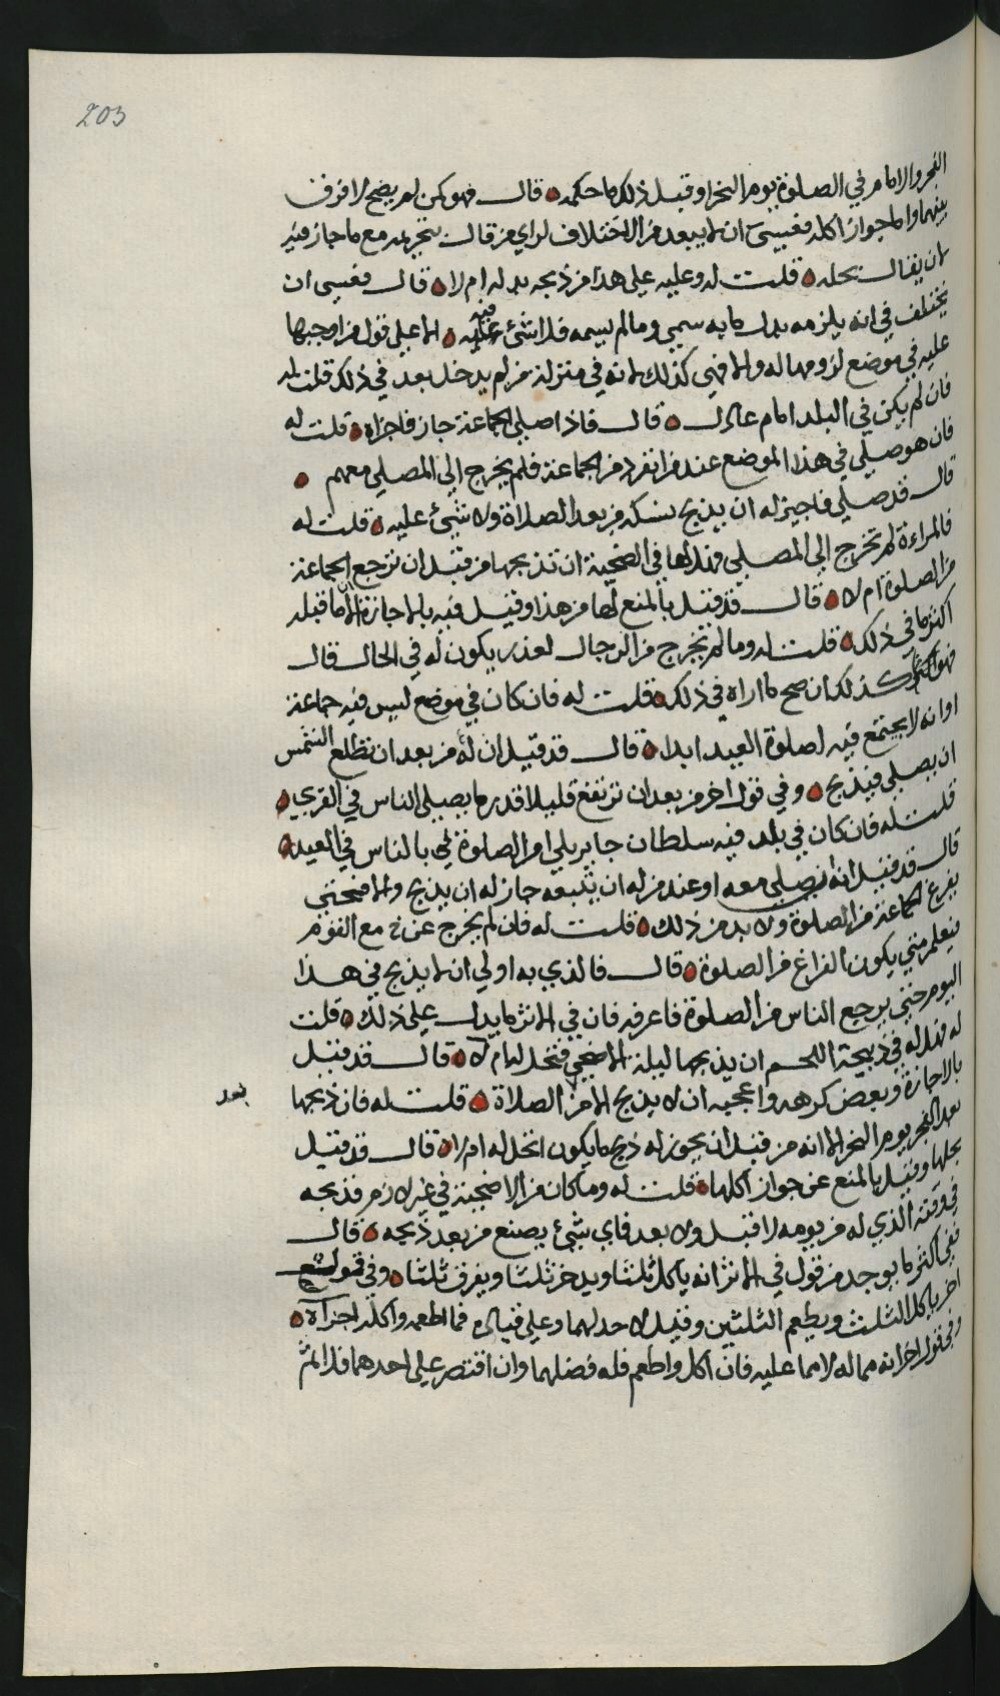 203
الفجر والامام في الصلوة يوم النحر او قبل ذلك ما حكمه قال فهو كمن لم يضح لا فرق
بينهما واما جواز اكله فعسى ان لا يبعد من الاختلاف لراي من قال بتحريمه مع ما جاز فيه
لان يقال بحله قلت له وعليه على هذا من ذبحه بدله ام لا قال فعسى ان
يختلف في انه يلزمه بدل ما به سمي وما لم يسمه فلا شئ فيه عليه الا على قول من اوجبها
عليه في موضع لزومها له والا فهي كذلك لانه في منزلة من لم يدخل بعد في ذلك قلت له
فان لم يكن في البلد امام عادل قال فاذا صلى الجماعة جاز فاجزاه قلت له
فان هو صلى في هذا الموضع عند من انفرد من الجماعة فلم يخرج الى المصلى معهم
قال قد صلى فاجيز له ان يذبح نسكه من بعد الصلاة ولا شئ عليه قلت له
فالمراءة لم تخرج الى المصلى فهل لها في الضحية ان تذبحها من قبل ان ترجع الجماعة
من الصلوة ام لا قال قد قيل بالمنع لها من هذا وقيل فيه بالاجازة الا ما قبله
اكثر ما في ذلك قلت له وما لم يخرج من الرجال لعذر يكون له في الحال قال
فهو كذلك ان صح ما اراه في ذلك قلت له فان كان في موضع ليس فيه جماعة
او انه لا يجتمع فيه لصلوة العيد ابدا قال قد قيل ان له من بعد ان تطلع الشمس
ان يصلي فيذبح وفي قول اخر من بعد ان ترتفع قليلا قدر ما يصلي الناس في القرى
قلت له فان كان في بلد فيه سلطان جاير يلي امر الصلوة بالناس في العيد
قال قد قيل انه يصلي معه او عند من له ان يتبعه جاز له ان يذبح والا فحتى
يفرغ الجماعة من الصلوة ولا بد من ذلك قلت له فان لم يخرج مع القوم
فيعلم متى يكون الفراغ من الصلوة قال فالذي به اولى ان لا يذبح في هذا
اليوم حتى يرجع الناس من الصلوة فاعرفه فان في الاثر ما يدل على ذلك قلت
له فهل له في ذبيحة اللحم ان يذبحها ليلة الاضحى فتحل له ام لا قال قد قيل
بالاجازة وبعض كرهه واعجبه ان لا يذبح الا من الصلاة قلت له فان ذبحها
بعد
بعد الفجر يوم النحر الا انه من قبل ان يجوز له ذبح ما يكون اتحل له ام لا قال قد قيل
بحلها وقيل بالمنع عن جواز اكلها قلت له وما كان من الاضحية في غير لازم فذبحه
في وقته الذي له من يومه لا قبل ولا بعد فاي شئ يصنع من بعد ذبحه قال
ففي اكثر ما يوجد من قول في الاثر انه ياكل ثلثا ويدخر ثلثا ويفرق ثلثا وفي قول
اخر ياكل الثلث ويطعم الثلثين وقيل لا حد لهما وعلى قياده فما اطعمه واكله اجزاه
وفي قول اخر انه مما له لا مما عليه فان اكل واطعم فله فضلهما وان اقتصر على احدهما فلا اثم